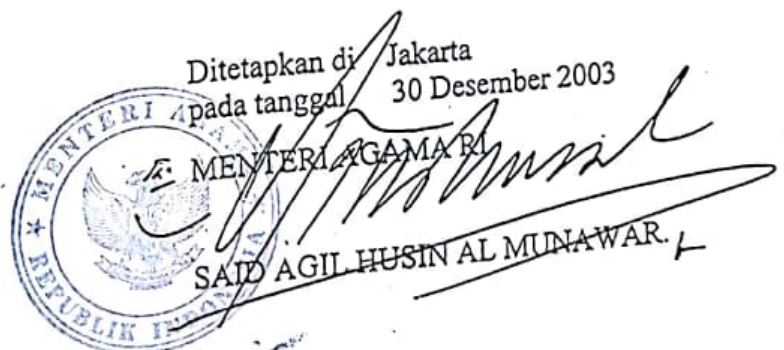 Ditetapkan di Jakarta
pada tanggal 30 Desember 2003
MENTERI AGAMA RI
SAID AGIL HUSIN AL MUNAWAR.
MENTERI AGAMA
REPUBLIK INDONESIA